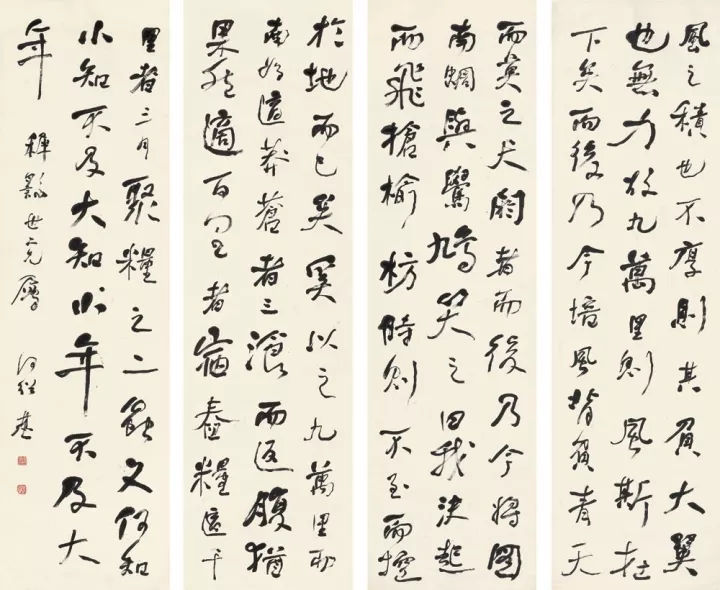 風之積也不厚則其負大翼
也無力故九萬里則風斯在
下矣而後乃今培風背負青天
而莫之夭閼者而後乃今將圖
南蜩與鷽鳩笑之曰我決起
而飛槍榆枋時則不至而控
於地而已矣奚以之九萬里而
南為適莽蒼者三湌而返腹猶
果然適百里者宿舂糧適千
里者三月聚糧之二蟲又何知
小知不及大知小年不及大
年
世大兄屬 何紹基